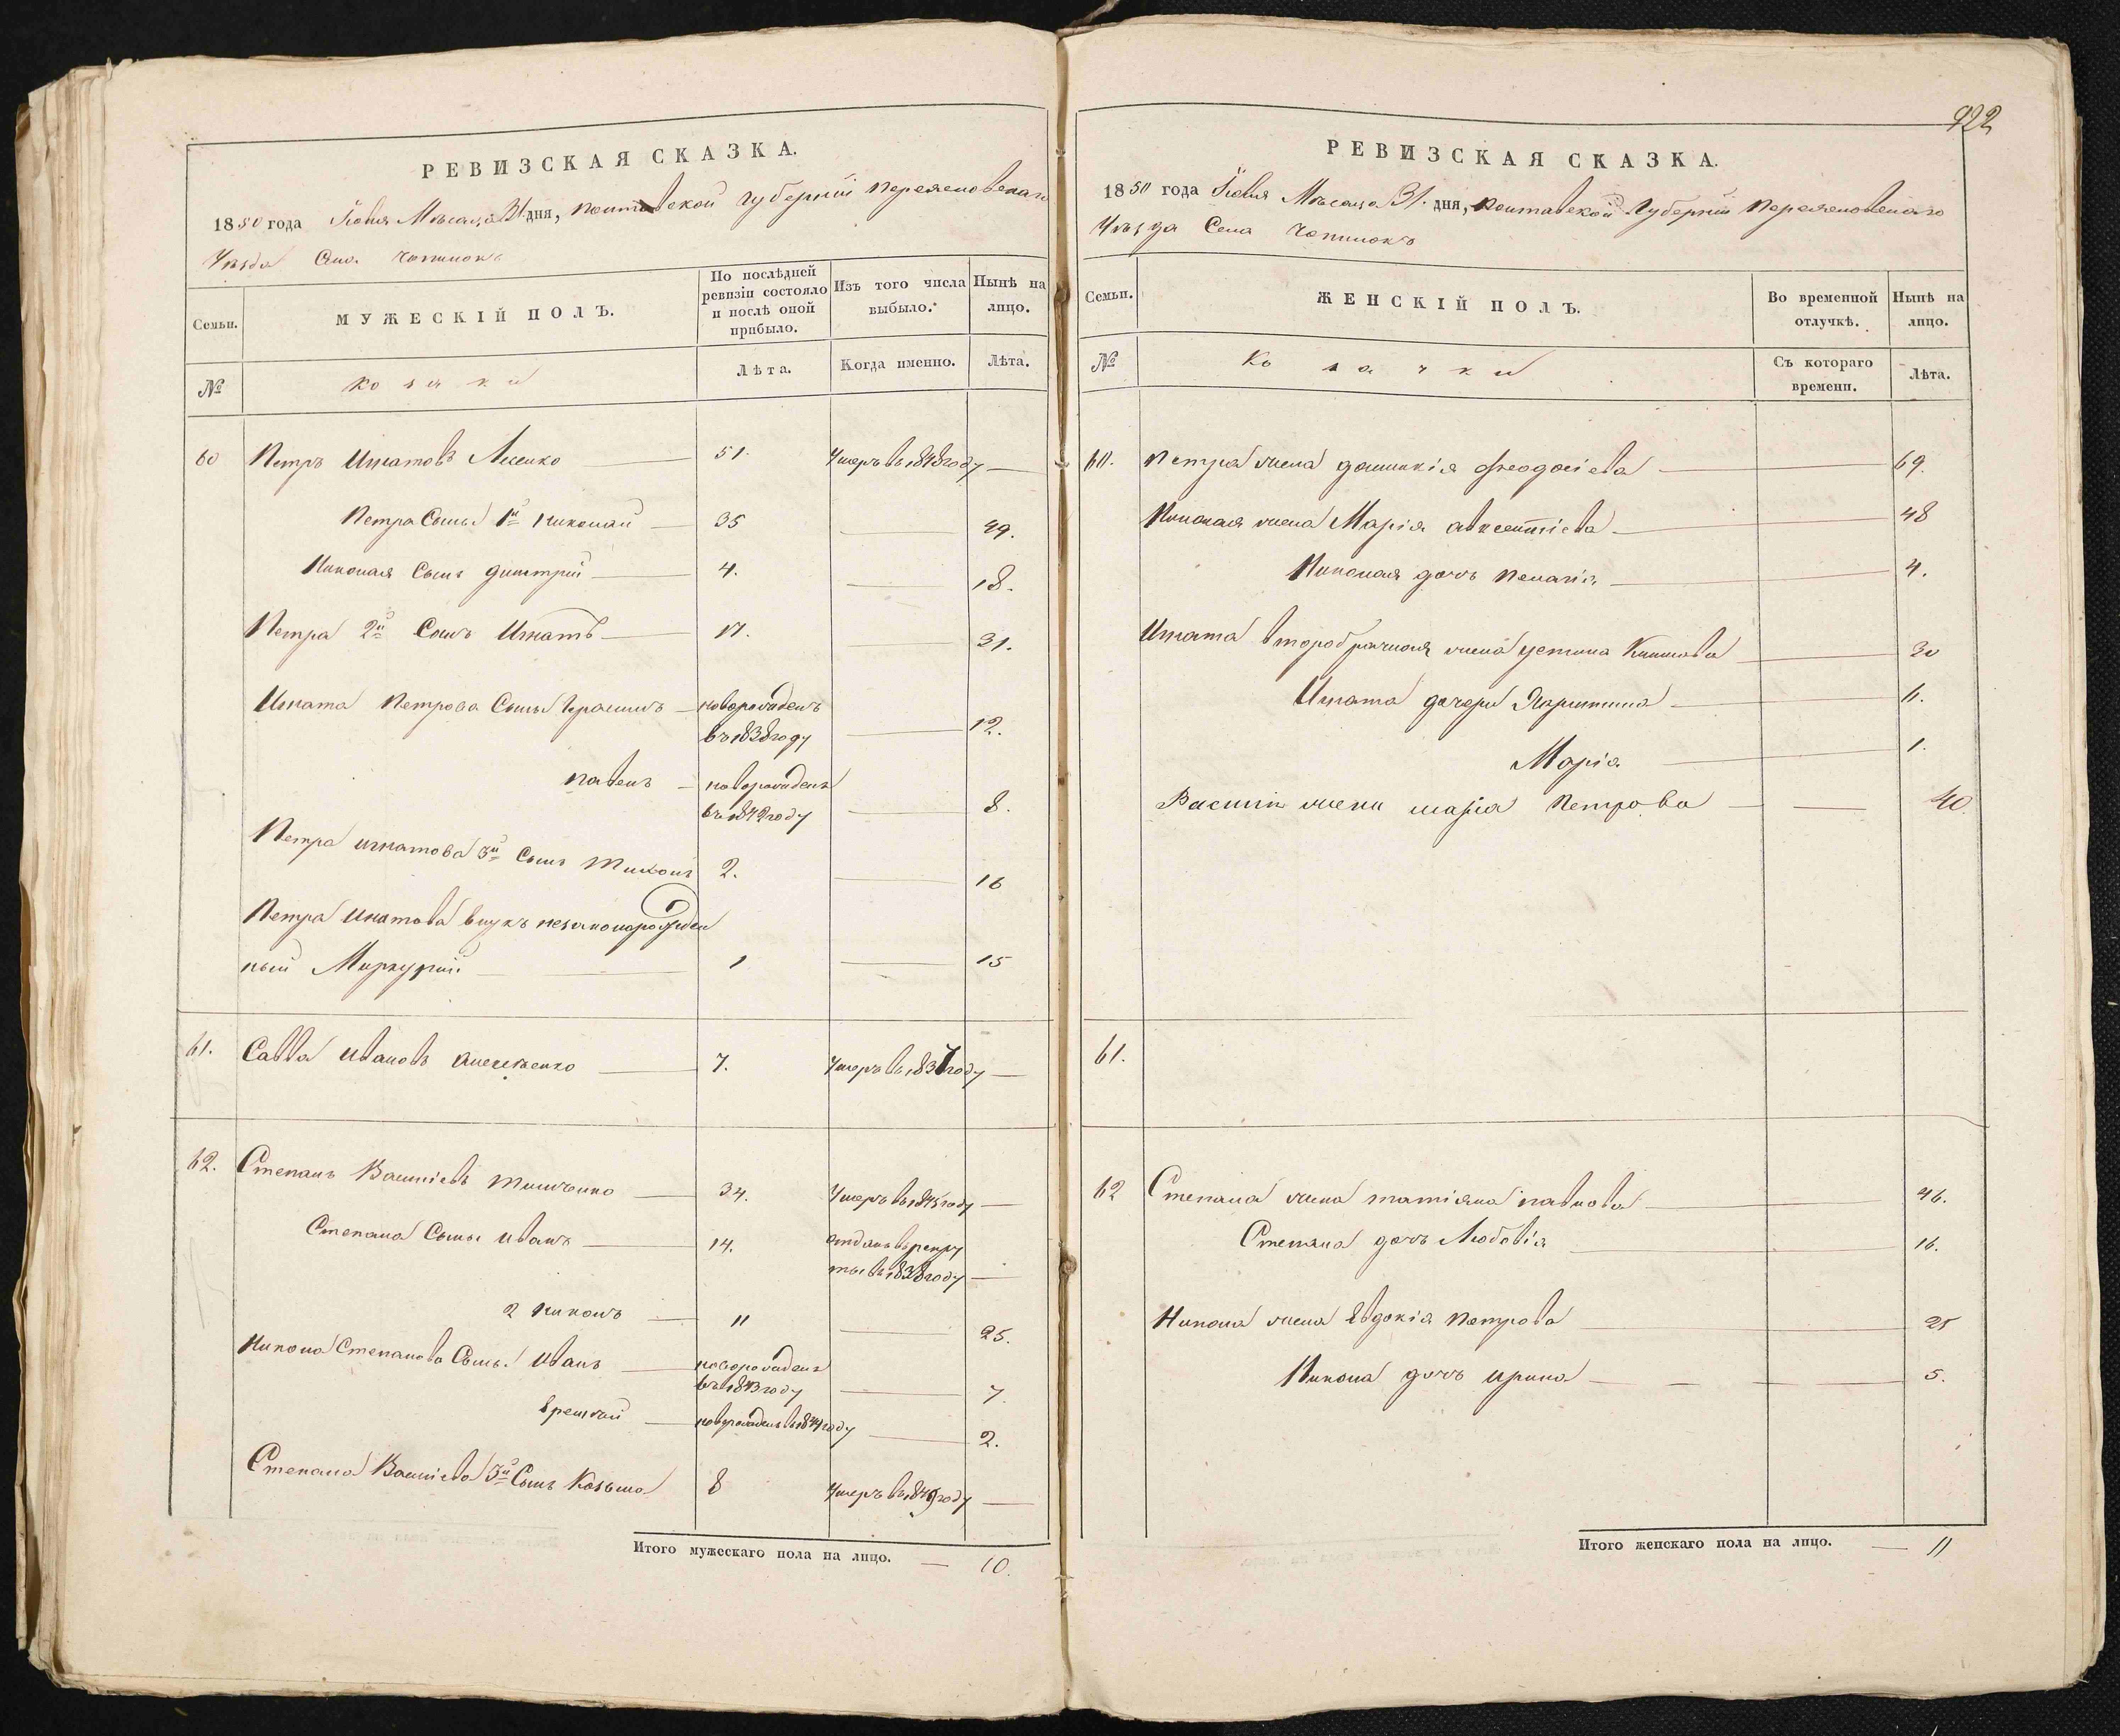 РЕВИЗСКАЯ СКАЗКА.
1850 года Іюня Мѣсяца 31. дня, Полтавской губерніи Переяславскаго
Уѣзда Села Чопилокъ
Семьи.
МУЖЕСКІЙ ПОЛЪ.
По послѣдней ревизіи состояло и послѣ оной прибыло.
Изъ того числа выбыло.
Нынѣ на лицо.
№
козаки
Лѣта.
Когда именно.
Лѣта.
60 Петръ Игнатовъ 51. Умеръ въ 1848 году —
Петра Сынъ 1й Николай — 35 — 49.
Николая Сынъ Димитрій — 4. — 18.
Петра 2й Сынъ Игнатъ — 17. — 31.
Игната Петрова Сыны Герасимъ — новорожденъ
въ 1838 году — 12.
Павелъ — новорожденъ
въ 1842 году — 8.
Петра Игнатова 3й Сынъ Тихонъ 2. — 16
Петра Игнатова внукъ незаконорожден
ный Меркурій — 1 — 15
61. Савва Ивановъ Алексѣенко — 7. Умеръ въ 1837 году —
62. Степанъ Васильевъ Тимченко — 34. Умеръ въ 1845 году —
Степана Сыны Иванъ — 14. отданъ въ рекру
ты въ 1838 году —
2 Никонъ — 11 — 25.
Никона Степанова Сынъ. Иванъ — новорожденъ
въ 1843 году — 7.
Еремѣй — новорожденъ въ 18 году — 2.
Степана Васильева 3й Сынъ Козьма 8 Умеръ въ 1849 году —
Итого мужескаго пола на лицо. — 10.
922
РЕВИЗСКАЯ СКАЗКА.
1850 года Іюня Мѣсяца 31. дня, Полтавской Губерніи Переяславскаго
Уѣзда Села Чопилокъ
Семьи.
ЖЕНСКІЙ ПОЛЪ.
Во временной отлучкѣ.
Нынѣ на лицо.
№
козачки
Съ котораго времени.
Лѣта.
60. Петра жена Домникія Феодосіева — 69.
Николая жена Марія Авксентіева — 48
Николая дочь Пелагія — 4.
Игната второбрачная жена Устина — 30
Игната дочери — 11.
Марія — 1.
жена Марія Петрова — 40.
61.
62 Степана жена Татіяна Павлова — 46.
Степана дочь Любовія — 16.
Никона жена Евдокія Петрова — 25
Никона дочь Ирина — 5.
Итого женскаго пола на лицо. — 11